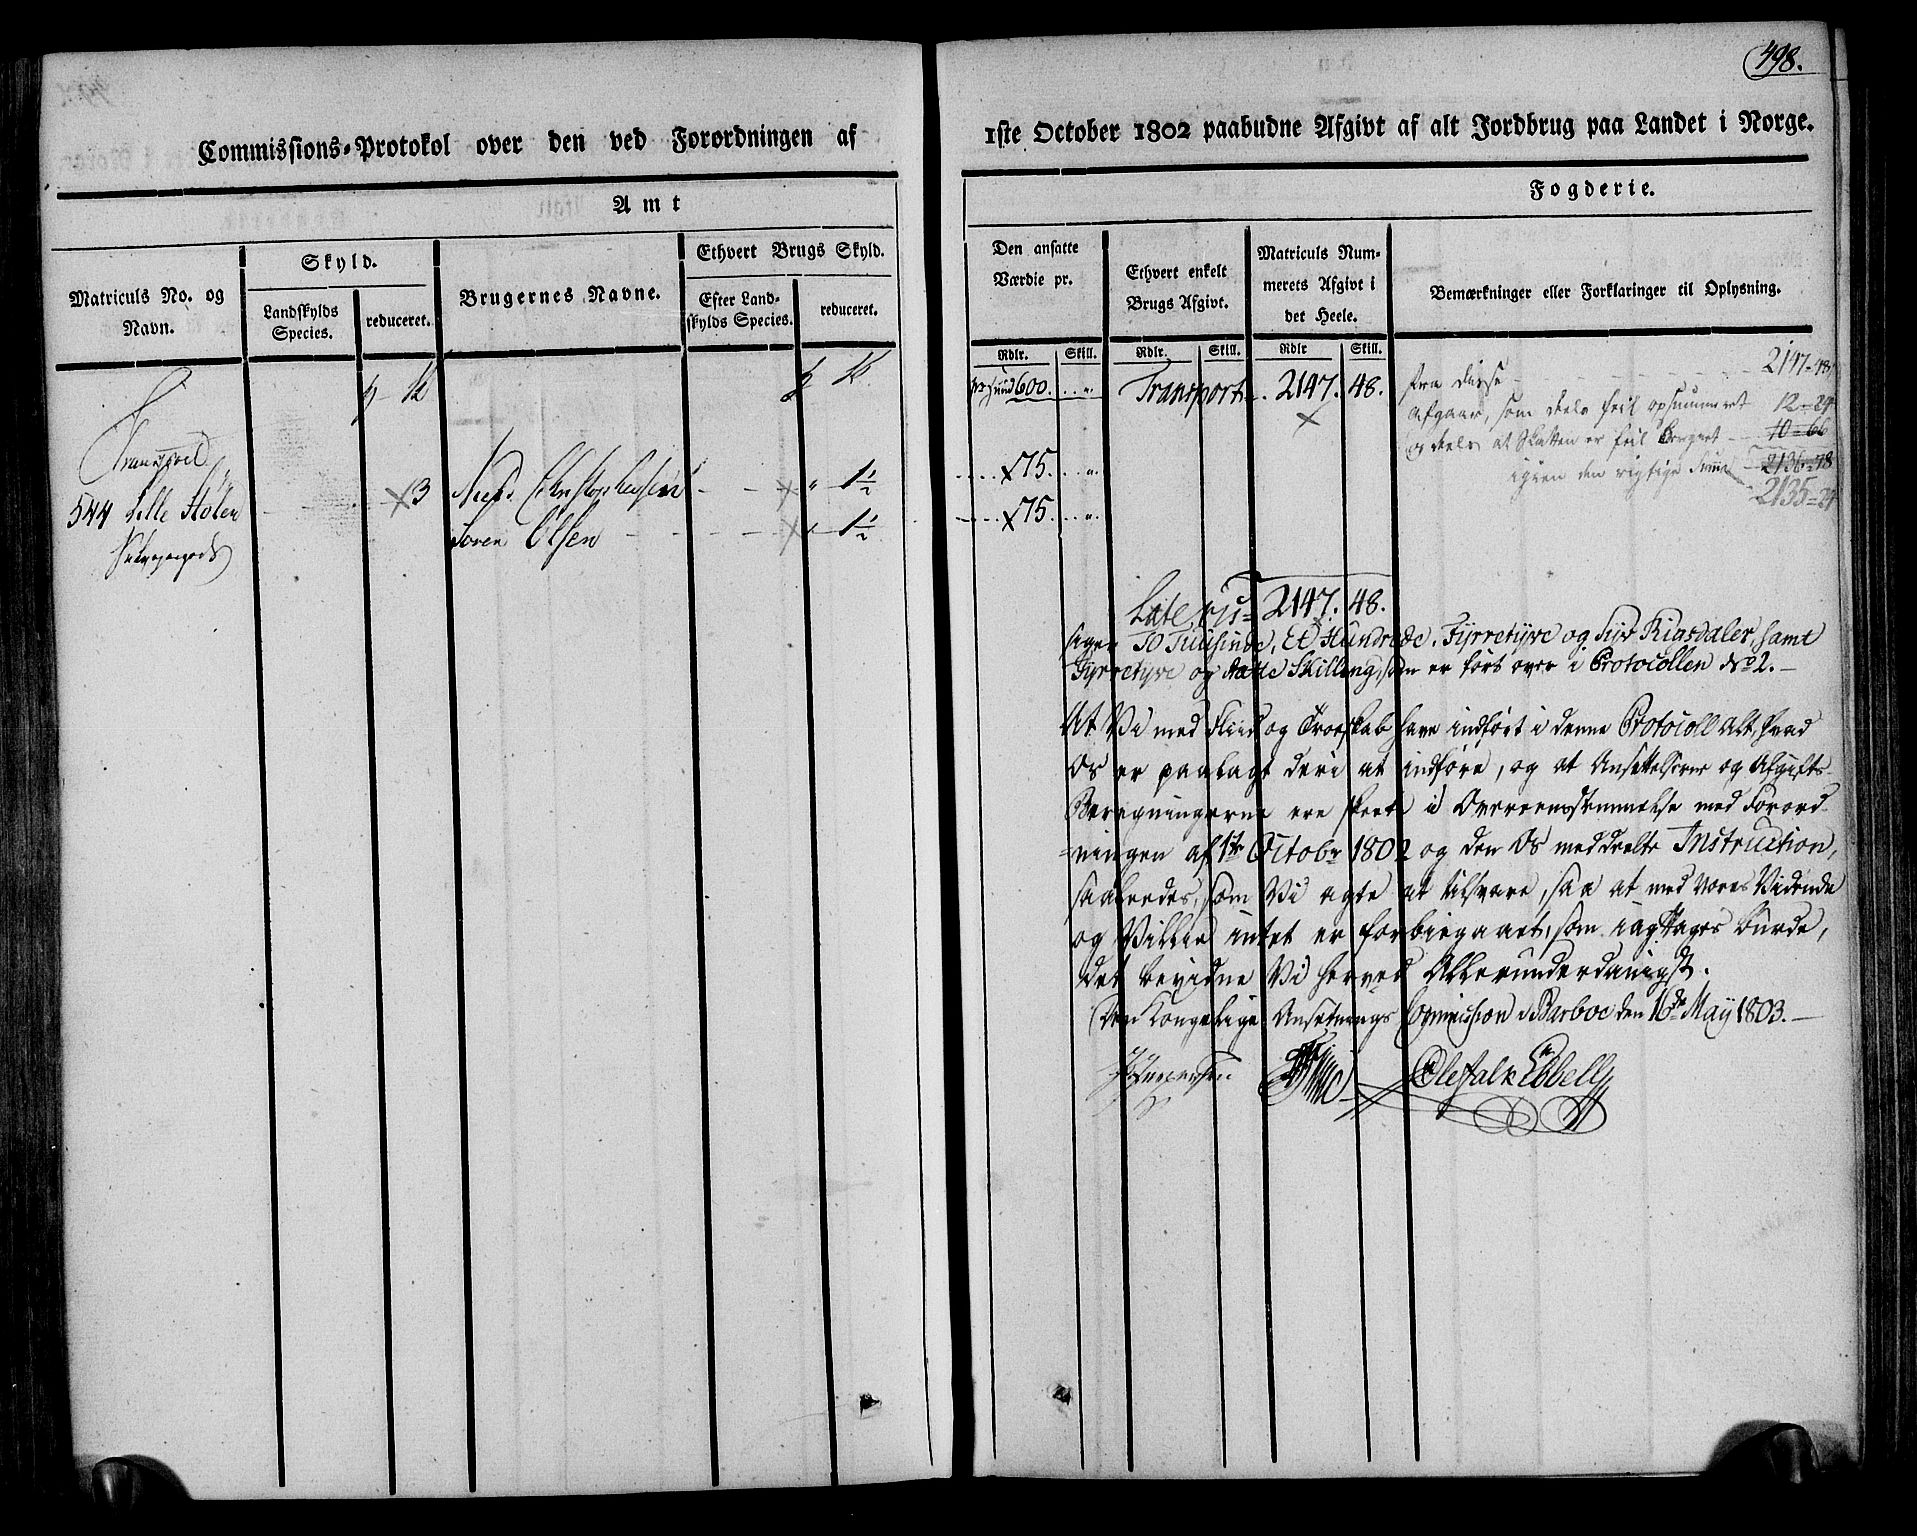 498.
Commissions-Protokol over den ved Forordningen af
1ste October 1802 paabudne Afgivt af alt Jordbrug paa Landet i Norge.
Amt
Fogderie.
Matriculs No. og Navn.
Skyld.
Landskylds Species.
reduceret.
Brugernes Navne.
Ethvert Brugs Skyld.
Efter Landskylds Species.
reduceret.
Den ansatte Værdie pr.
Ethvert enkelt Brugs Afgivt.
Matriculs Nummerets Afgivt i det Heele.
Bemærkninger eller Forklaringer til Oplysning.
Rdlr. Skill. Rdlr. Skill. Rdlr Skill.
Transport
600. Transport 2147. 48.
fra disse 2147-48
afgaar, som deels feil opsummeret 12=24
og deels at Skatten er feil beregnet 10=66
igien den rigtige Summa 2136=78
2135=24
544 Lille Holen 3 Niels Christophersen " 1 1/2 75.
Soren Olsen " 1 1/2 75.
Late 2147. 48.
siger To Tuusinde, Et Hundrede, Fyrretyve og Syv Rigsdaler, samt
Fyrretyve og Aatte Skilling, som er ført over i Protocollen No 2.
At Vi med Fliid og Troeskab have indført i denne Protocoll alt, hvad
Os er paalagt deri at indføre, og at Ansættelserne og Afgifts-
Beregningerne ere skeete i Overeensstemmelse med Forord-
=ningen af 1ste Octobr 1802 og den Os meddeelte Instruction,
saaledes, som Vi agte at tilsvare, saa at med vores Vidende
og Villie intet er forbiegaaet, som iagttages burde,
det bevidne Vi herved Allerunderdanigst.
Den Kongelige Ansætnings Commission i Barboe den 16de May 1803.
Ole Falk Ebbell